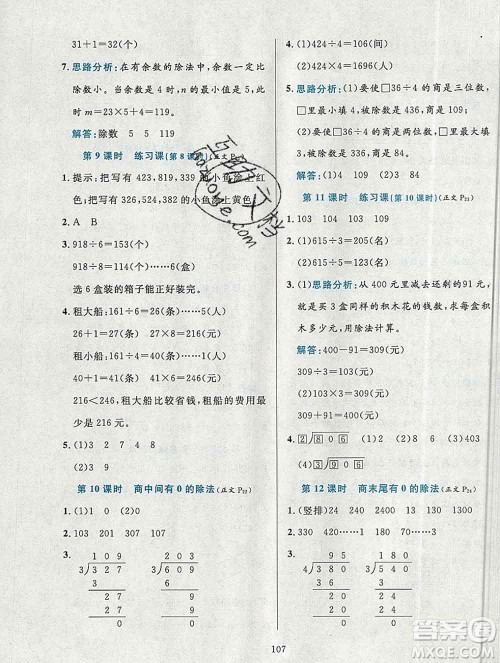 31+1=32(个)
7. 思路分析:在有余数的除法中,余数一定比
除数小。当余数是 4 时,除数的最小值是 5,此
时 m=23×5+4=119。
解答:除数 5 5 119
第 9 课时 练习课(第 8 课时)(正文 P₂₁)
1. 提示:把写有 423,819,339 的小鱼涂上红
色,把写有 326,524,382 的小鱼涂上黄色。
2. A B
3. 918÷6=153(个)
918÷9=102(个)
918÷8=114(盒)……6(个)
选 6 盒装的箱子能正好装完。
4. 租大船:161÷6=26(条)……5(人)
26+1=27(条) 27×8=216(元)
租小船:161÷4=40(条)……1(人)
40+1=41(条) 41×6=246(元)
216<246,租大船比较省钱,租大船的费用最少
是 216 元。
5. (1)3 2 7 4 8
(2)9 2 8 8 3
第 10 课时 商中间有 0 的除法(正文 P₂₂)
1. (1)1 0 (2)0
2. 103 201 307 103
3.
109 203
3)327 3)609
3 6
27 9
27 9
0 0
4. (1)424÷4=106(间)
(2)424×4=1696(人)
5. 思路分析:(1)要使□36÷4 的商是三位数,
□里最小填 4,被除数是 436;(2)要使
□36÷4 的商是两位数,□里最大填 3,被除
数是 336。
第 11 课时 练习课(第 10 课时)(正文 P₂₃)
1. 103 104 109 103
2. (1)615÷3=205(个)
(2)615÷5=123(个)
3. (1)思路分析:从 400 元里减去还剩的 91 元,
就是买 3 盒同样的积木花的钱数,求每盒积
木多少元,用除法计算。
解答:400-91=309(元)
309÷3=103(元)
(2)309+91=400(元)
4. 2)806 2)806
第 12 课时 商末尾有 0 的除法(正文 P₂₄)
1. (竖排) 40 400 230 2300
2. 330 420……1 120……3
3.
95 180
4)380 3)540
36 3
20 24
20 24
0 0
107
答案圈
MXQE.COM